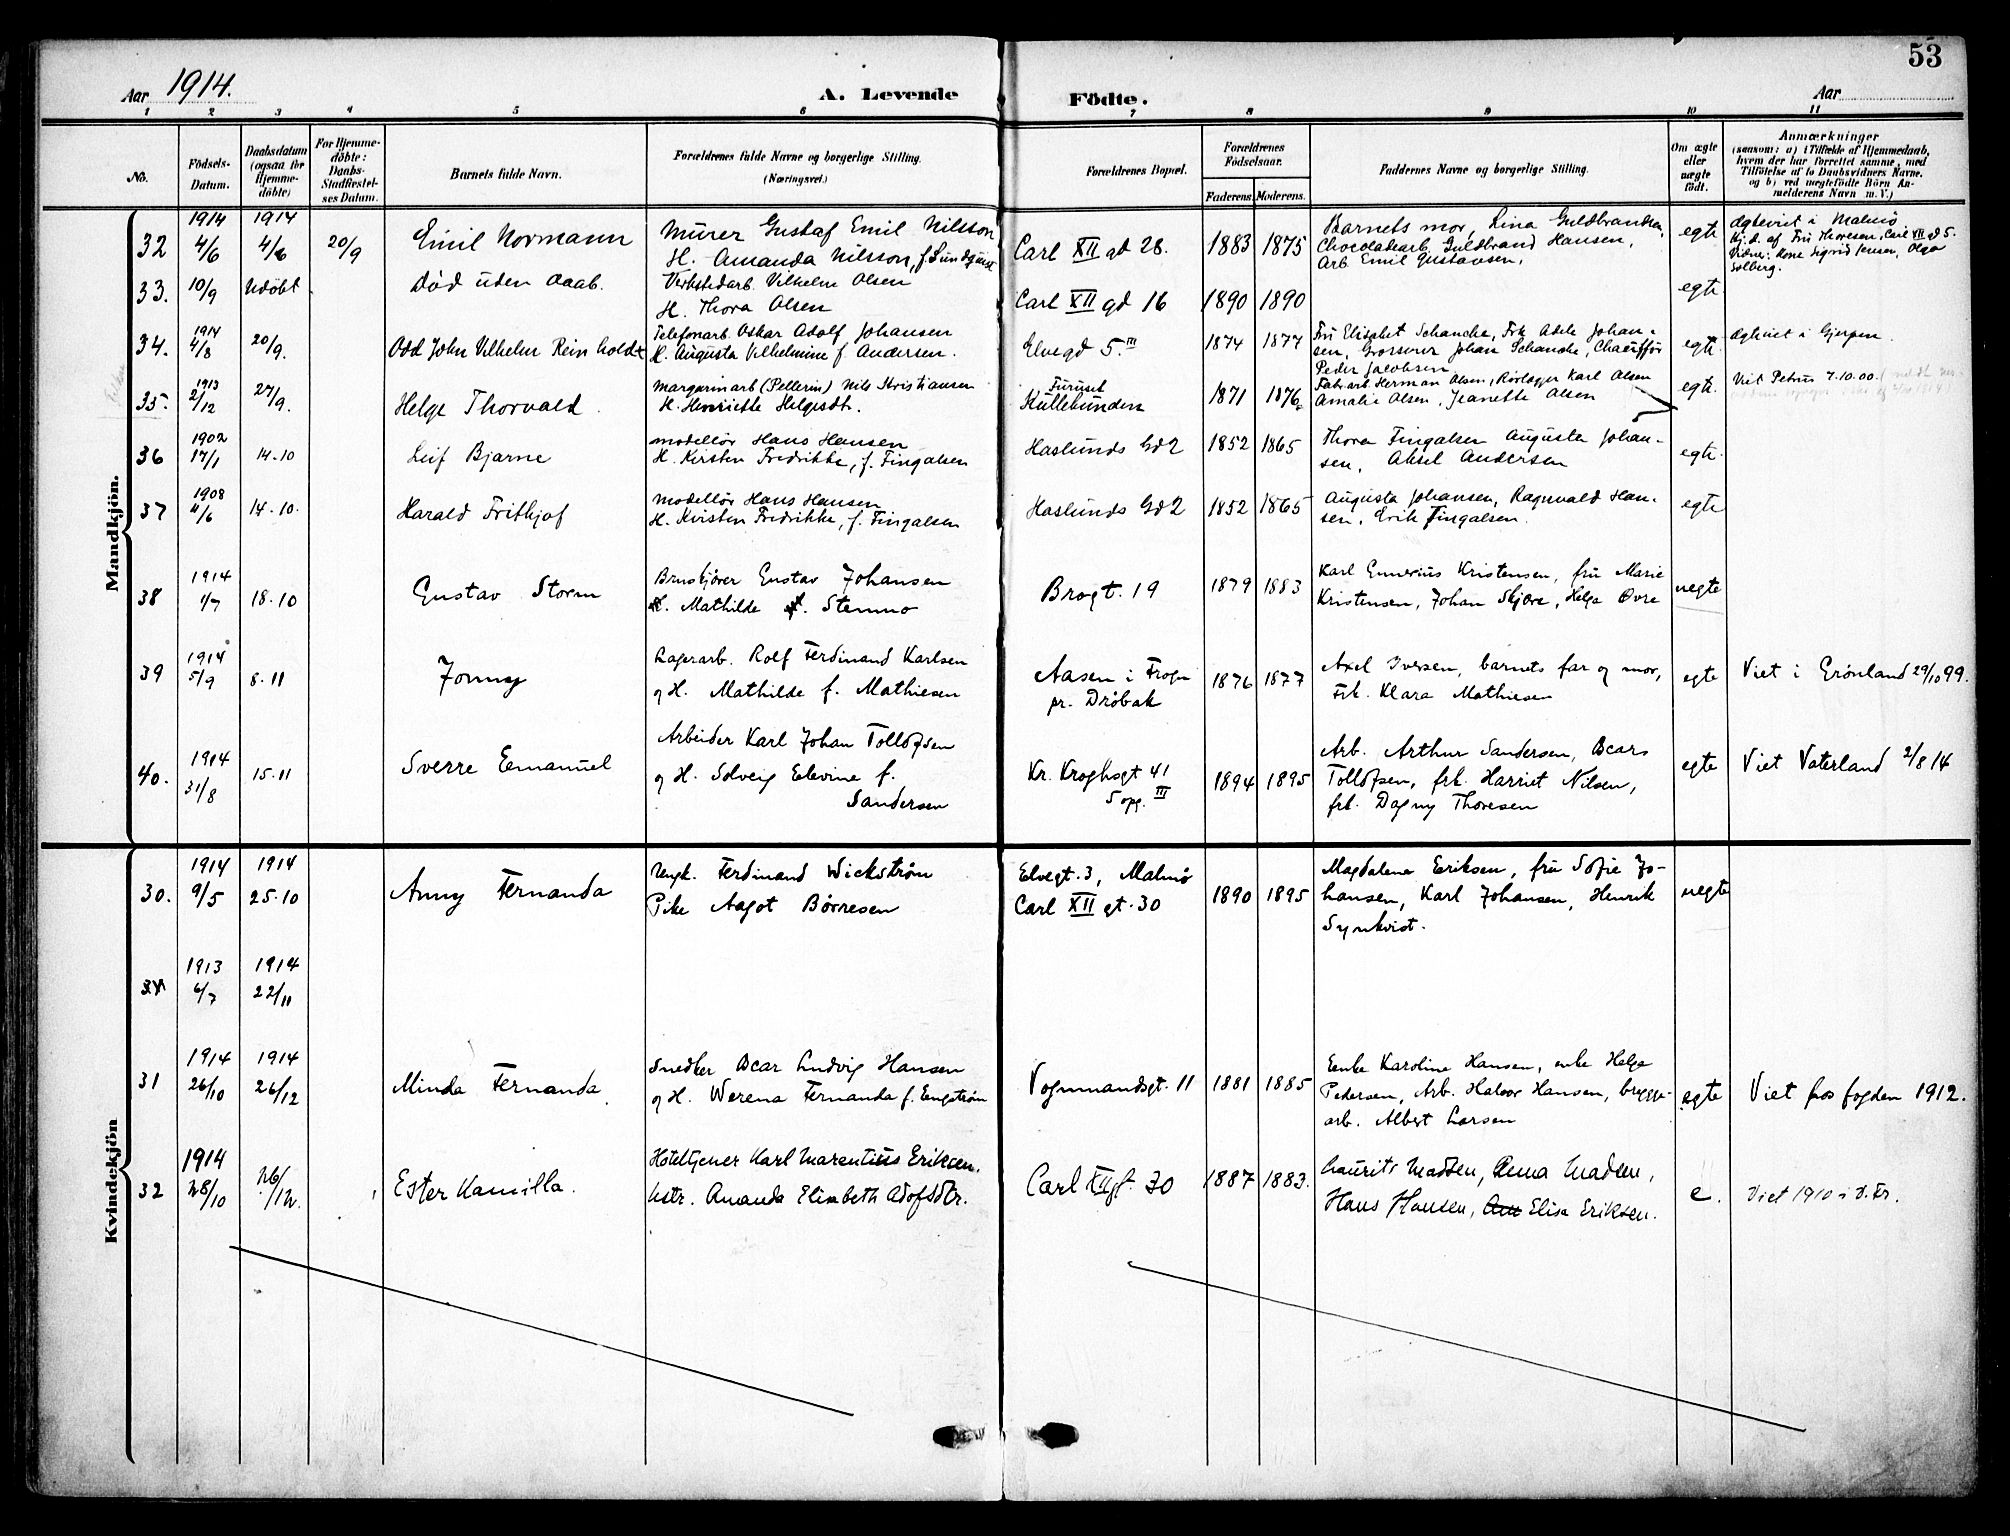 53
Aar 1914. A. Levende Födte. Aar
1 2 3 4 5 6 7 8 9 10 11
No.
Födsels-Datum.
Daabsdatum (ogsaa for Hjemme-döbte)
For Hjemme-döbte: Daabs-Stadfæstel-ses Datum.
Barnets fulde Navn.
Forældrenes fulde Navne og borgerlige Stilling.
(Næringsvei.)
Forældrenes Bopæl.
Forældrenes Födselsaar.
Faderens. Moderens.
Faddernes Navne og borgerlige Stilling.
Om ægte eller uægte født.
Anmærkninger
(saasom: a) i Tilfælde af Hjemmedaab,
hvem der har forrettet samme, med
Tilföielse af to Daabsvidners Navne,
og b) ved uægtefödte Börn An-
melderens Navn m. V.)
Mandkjön.
32 1914 4/6 1914 4/6 20/9 Emil Normann
Murer Gustaf Emil Nilsson
H. Amanda Nilsson, f. Lundquist
Carl XII gd 28. 1883 1875
Barnets mor, Lina Guldbrandsen,
Chocoladearb. Guldbrand Hansen,
Arb. Emil Gustavsen,
egte
Ægteviet i Malmö
Hj.d. af Fru Thoresen, Carl XII gd 5.
Vidner: Kone Sigrid Jensen, Olga
Solberg.
33. 10/9 Udöbt Död uden daab.
Verkstedarb. Vilhelm Olsen
H. Thora Olsen
Carl XII gd 16 1890 1890 egte
34. 1914 4/8 20/9. Odd John Vilhelm Reinholdt
Telefonarb. Oskar Adolf Johansen
H. Augusta Vilhelmine f. Andersen.
Elvegd 5.III 1874 1877
Fru Elisabet Schanche, Frk Adele Johan-
sen, Grosserer Johan Schanche, Chaufför
Peder Jacobsen
egte. Ægteviet i Gjerpen.
35. 1913 2/12 27/9. Helge Thorvald.
Margarinarb (Pellerin) Nils Kristiansen
H. Henriette Helgesdt.
Furuset
Kullebunden 1871 1876
Fabr.arb Herman Olsen, Rörlægger Karl Olsen
Amalie Olsen, Jeanette Olsen
egte. Viet Petrus 7.10.00.
36 1902 17/1 14-10 Leif Bjarne
Modellör Hans Hansen
H. Kirsten Fredrikke, f. Fingalsen
Haslunds Gd 2 1852 1865
Thora Fingalsen Augusta Johan-
sen, Aksel Andersen
egte.
37 1908 4/6 14-10. Harald Frithjof
Modellör Hans Hansen
H. Kirsten Fredrikke, f. Fingalsen
Haslunds Gd 2 1852 1865
Augusta Johansen, Ragnvald Han-
sen, Erik Fingalsen.
egte
38 1914 1/7 18.10 Gustav Storm
Bruskjører Gustav Johansen
Mathilde Stemmo
Brogt. 19 1879 1883
Karl Gunerius Kristensen, fru Marie
Kristensen, Johan Skjøre, Helga Øvre
uegte
39 1914 5/9 8.11 Jonny
Lagerarb. Rolf Ferdinand Karlsen
og H. Mathilde f. Mathiesen
Aasen i Frogn
pr. Drøbak 1876 1877
Axel Iversen, barnets far og mor,
Frk. Klara Mathiesen
egte Viet i Grønland 29/10 99.
40. 1914 31/8 15.11 Sverre Emanuel
Arbeider Karl Johan Tollofsen
og H. Solveig Elevine f.
Sandersen
Kr. Kroghsgt 41
5 opg. III 1894 1895
Arb. Arthur Sandersen, Oscar
Tollofsen, frk. Harriet Nilsen,
frk. Dagny Thoresen
egte Viet Vaterland 2/8 14
Kvindekjön
30. 1914 9/5 1914 25.10 Anny Fernanda
Ungk. Ferdinand Wickström
Pike Aagot Børresen
Elvegt. 3, Malmö
Carl XII gt. 30 1890 1895
Magdalene Eriksen, fru Sofie Jo-
hansen, Karl Johansen, Henrik
Synkvist.
uegte
31 1913 6/7 1914 22/11
31 1914 26/10 1914 26/12 Minda Fernanda
Snedker Oscar Ludvig Hansen
og H. Werena Fernanda f. Engstrøm
Vognmandsgt. 11 1881 1885
Enke Karoline Hansen, enke Helga
Pedersen, Arb. Halvor Hansen, brygge-
arb. Albert Larsen
egte Viet hos fogden 1912.
32 1914 28/10 26/12. Ester Kamilla.
Hoteltjener Karl Marentius Eriksen.
hstr. Amanda Elisabeth Adofsdtr.
Carl XII gt. 30 1887 1883.
Laurits Madsen, Anna Madsen,
Hans Hansen, Elise Eriksen.
e. Viet 1910 i V. Fr.